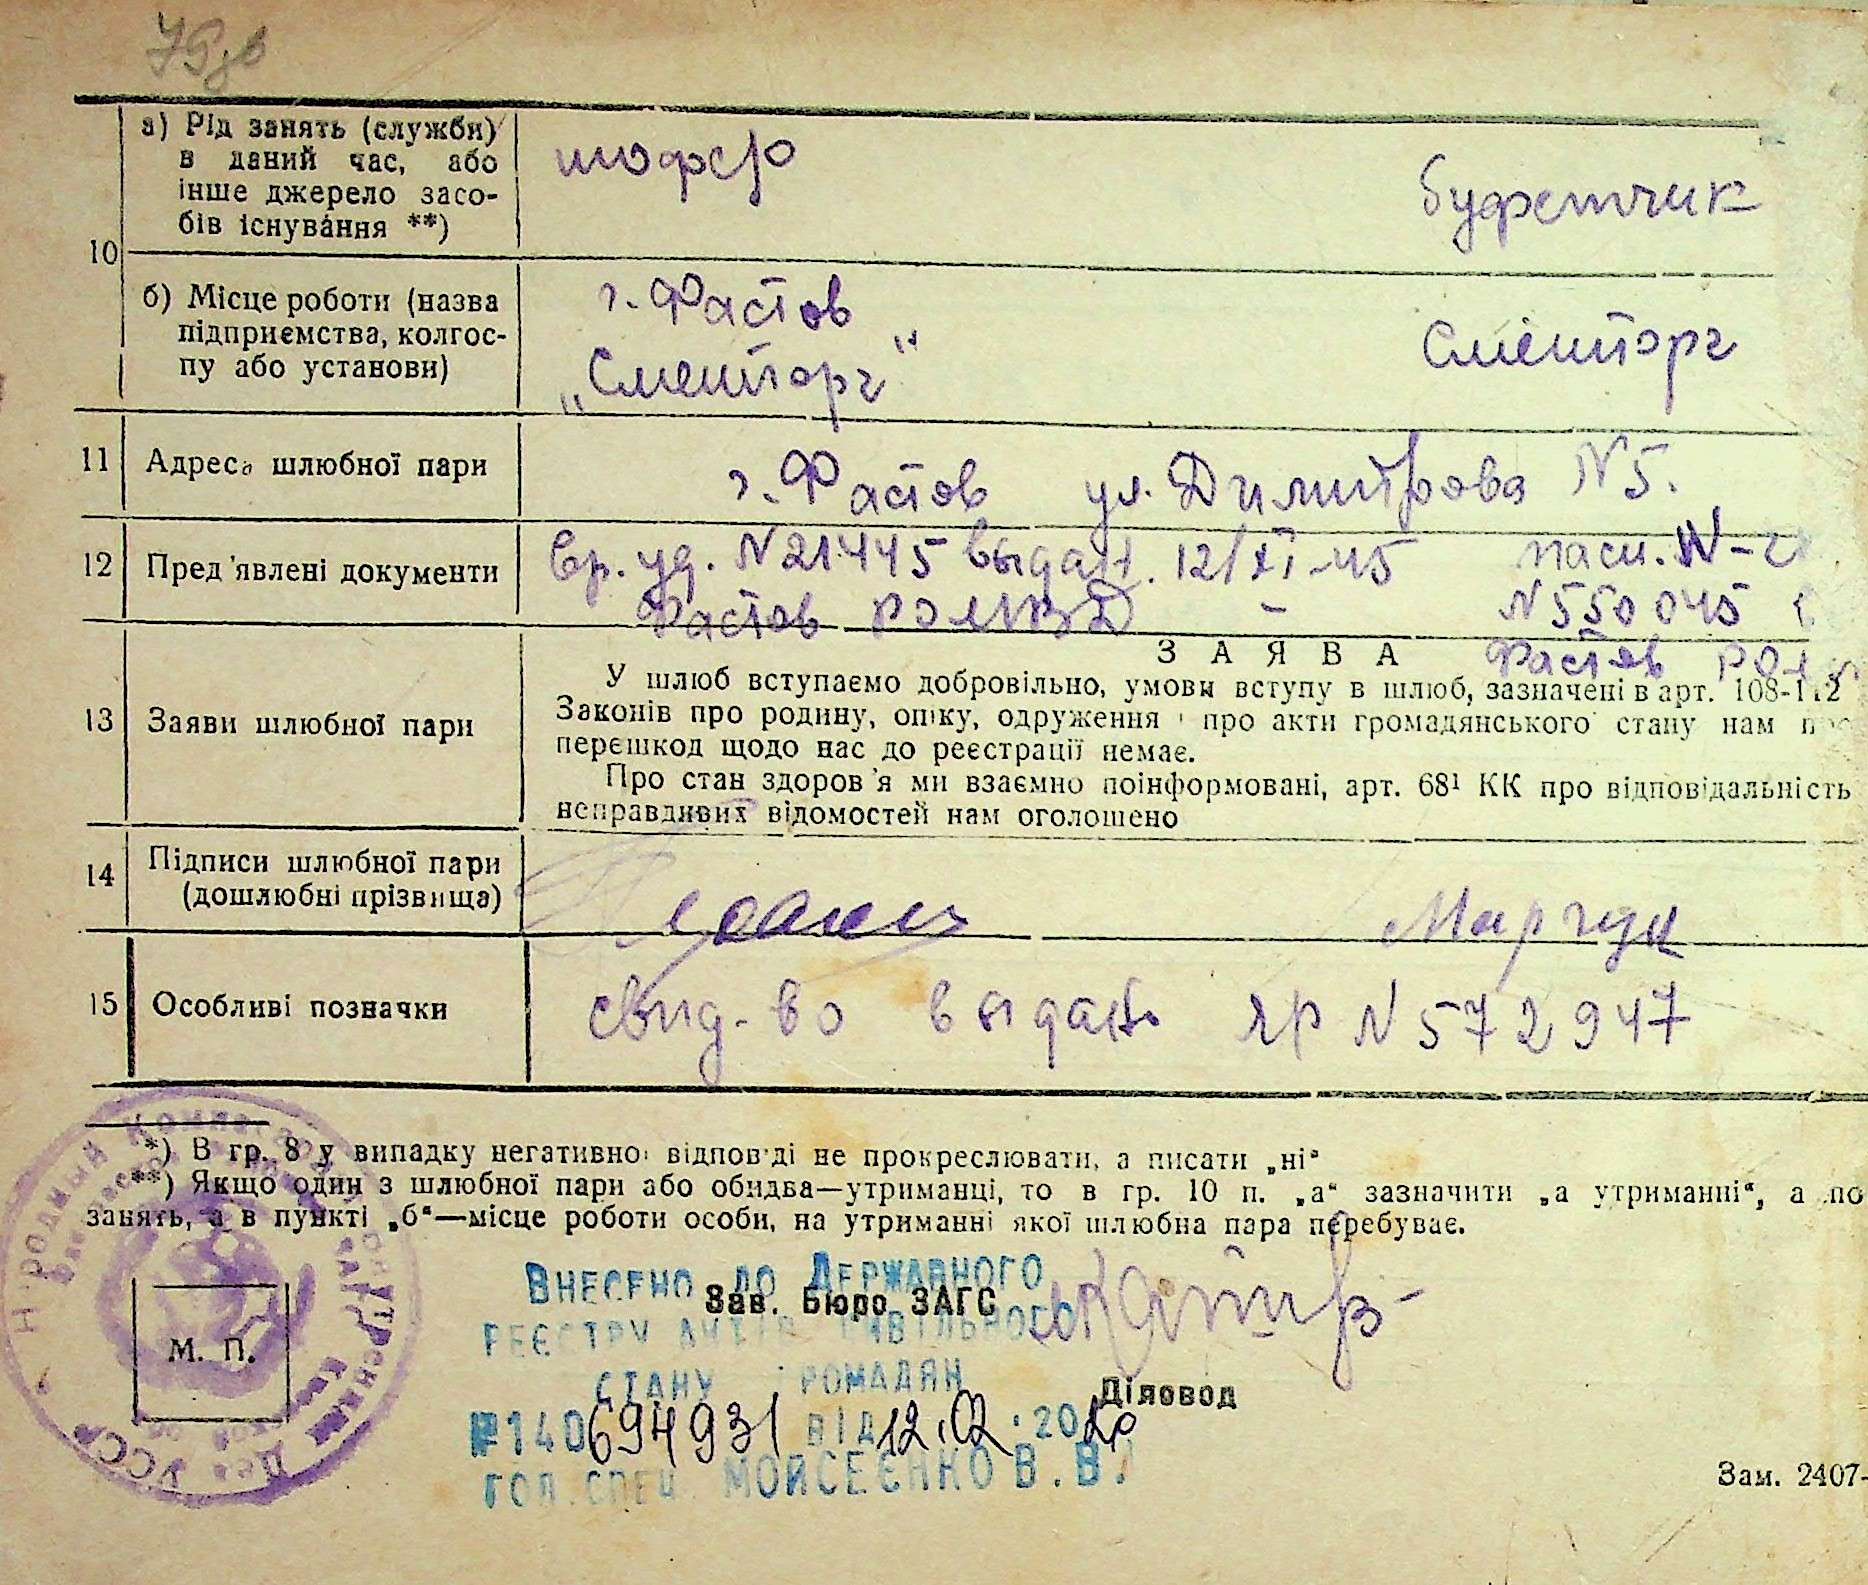 а) Рід занять (служби)
в даний час, або
інше джерело засо-
бів існування **)
шофер
буфетчик
10
б) Місце роботи (назва
підприємства, колгос-
пу або установи)
г. Фастов
„Смешторг"
Смешторг
11 Адреса шлюбної пари
г. Фастов ул. Димитрова N 5.
12 Пред'явлені документи
Вр. уд. N 21445 выдан. 12/XI-45
Фастов РОМВД -
пасп.
N 550045
Фастов
13 Заяви шлюбної пари
ЗАЯВА
У шлюб вступаємо добровільно, умови вступу в шлюб, зазначені в арт. 108-112
Законів про родину, опіку, одруження і про акти громадянського стану нам
перешкод щодо нас до реєстрації немає.
Про стан здоров'я ми взаємно поінформовані, арт. 68¹ КК про відповідальність
неправдивих відомостей нам оголошено
14 Підписи шлюбної пари
(дошлюбні прізвища)
15 Особливі позначки
свид-во выдано ЯР N 572947
*) В гр. 8 у випадку негативної відповіді не прокреслювати, а писати „ні"
**) Якщо один з шлюбної пари або обидва—утриманці, то в гр. 10 п. „а" зазначити „а утриманні", а по
занять, а в пункті „б"—місце роботи особи, на утриманні якої шлюбна пара перебуває.
М. П.
Внесено до Державного
Зав. Бюро ЗАГС
реєстру актів цивільного
стану громадян
Діловод
№140694931 від 12.02.2020
гол. спец. Мойсеєнко В.В.
Зам. 2407-